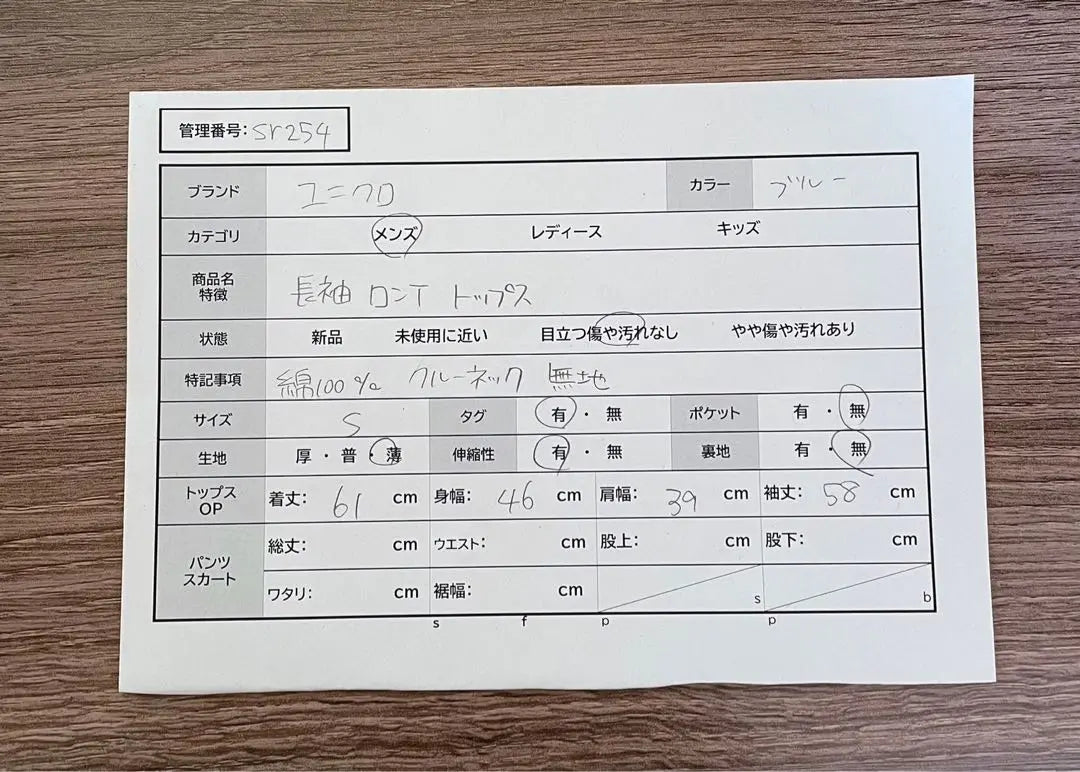 管理番号: sr254
ブランド ユニクロ カラー ブルー
カテゴリ メンズ レディース キッズ
商品名 特徴 長袖 ロンT トップス
状態 新品 未使用に近い 目立つ傷や汚れなし やや傷や汚れあり
特記事項 綿100% クルーネック 無地
サイズ S タグ 有・無 ポケット 有・無
生地 厚・普・薄 伸縮性 有・無 裏地 有・無
トップス OP 着丈: 61 cm 身幅: 46 cm 肩幅: 39 cm 袖丈: 58 cm
パンツ スカート 総丈: cm ウエスト: cm 股上: cm 股下: cm
ワタリ: cm 裾幅: cm s b
s f p p